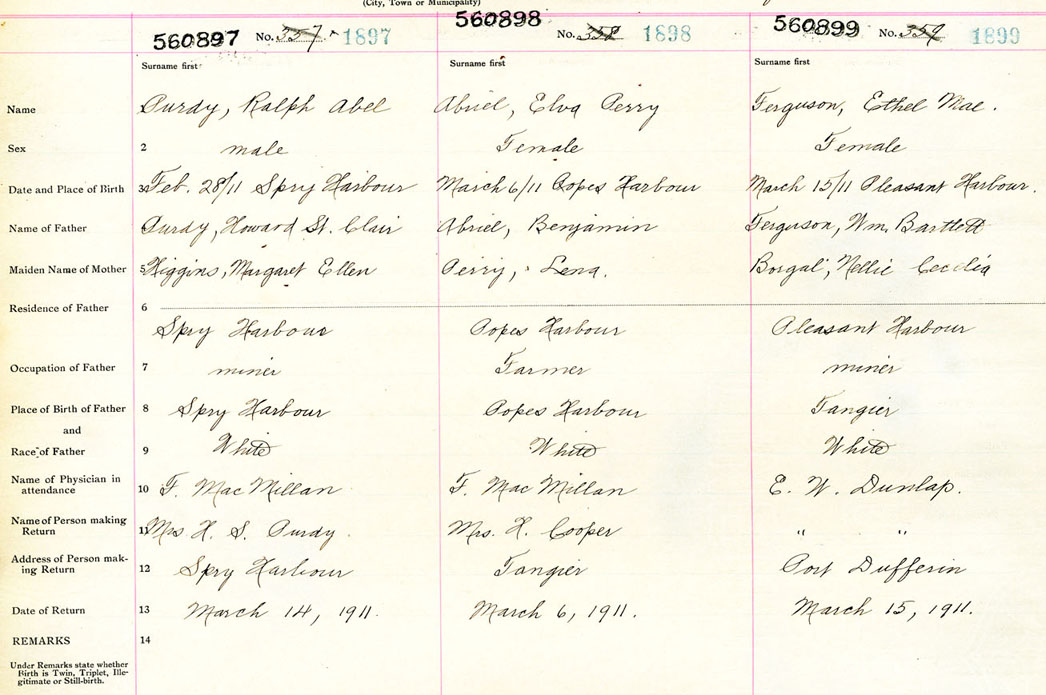 (City, Town or Municipality)
560897 No. 357 1897 560898 No. 358 1898 560899 No. 359 1899
Surname first Surname first Surname first
Name Purdy, Ralph Abel Abriel, Elva Perry Ferguson, Ethel Mae.
Sex 2 male Female Female
Date and Place of Birth 3 Feb. 28/11 Spry Harbour March 6/11 Popes Harbour March 15/11 Pleasant Harbour.
Name of Father 4 Purdy, Howard St. Clair Abriel, Benjamin Ferguson, Wm. Bartlett
Maiden Name of Mother 5 Higgins, Margaret Ellen Perry, Lena. Borgal, Nellie Cecelia
Residence of Father 6
Spry Harbour Popes Harbour Pleasant Harbour
Occupation of Father 7 miner Farmer miner
Place of Birth of Father 8 Spry Harbour Popes Harbour Tangier
and
Race of Father 9 White White White
Name of Physician in
attendance 10 F. MacMillan F. MacMillan E. W. Dunlap.
Name of Person making
Return 11 Mrs H. S. Purdy. Mrs. H. Cooper " "
Address of Person mak-
ing Return 12 Spry Harbour Tangier Port Dufferin
Date of Return 13 March 14, 1911. March 6, 1911. March 15, 1911.
REMARKS 14
Under Remarks state whether
Birth is Twin, Triplet, Ille-
gitimate or Still-birth.